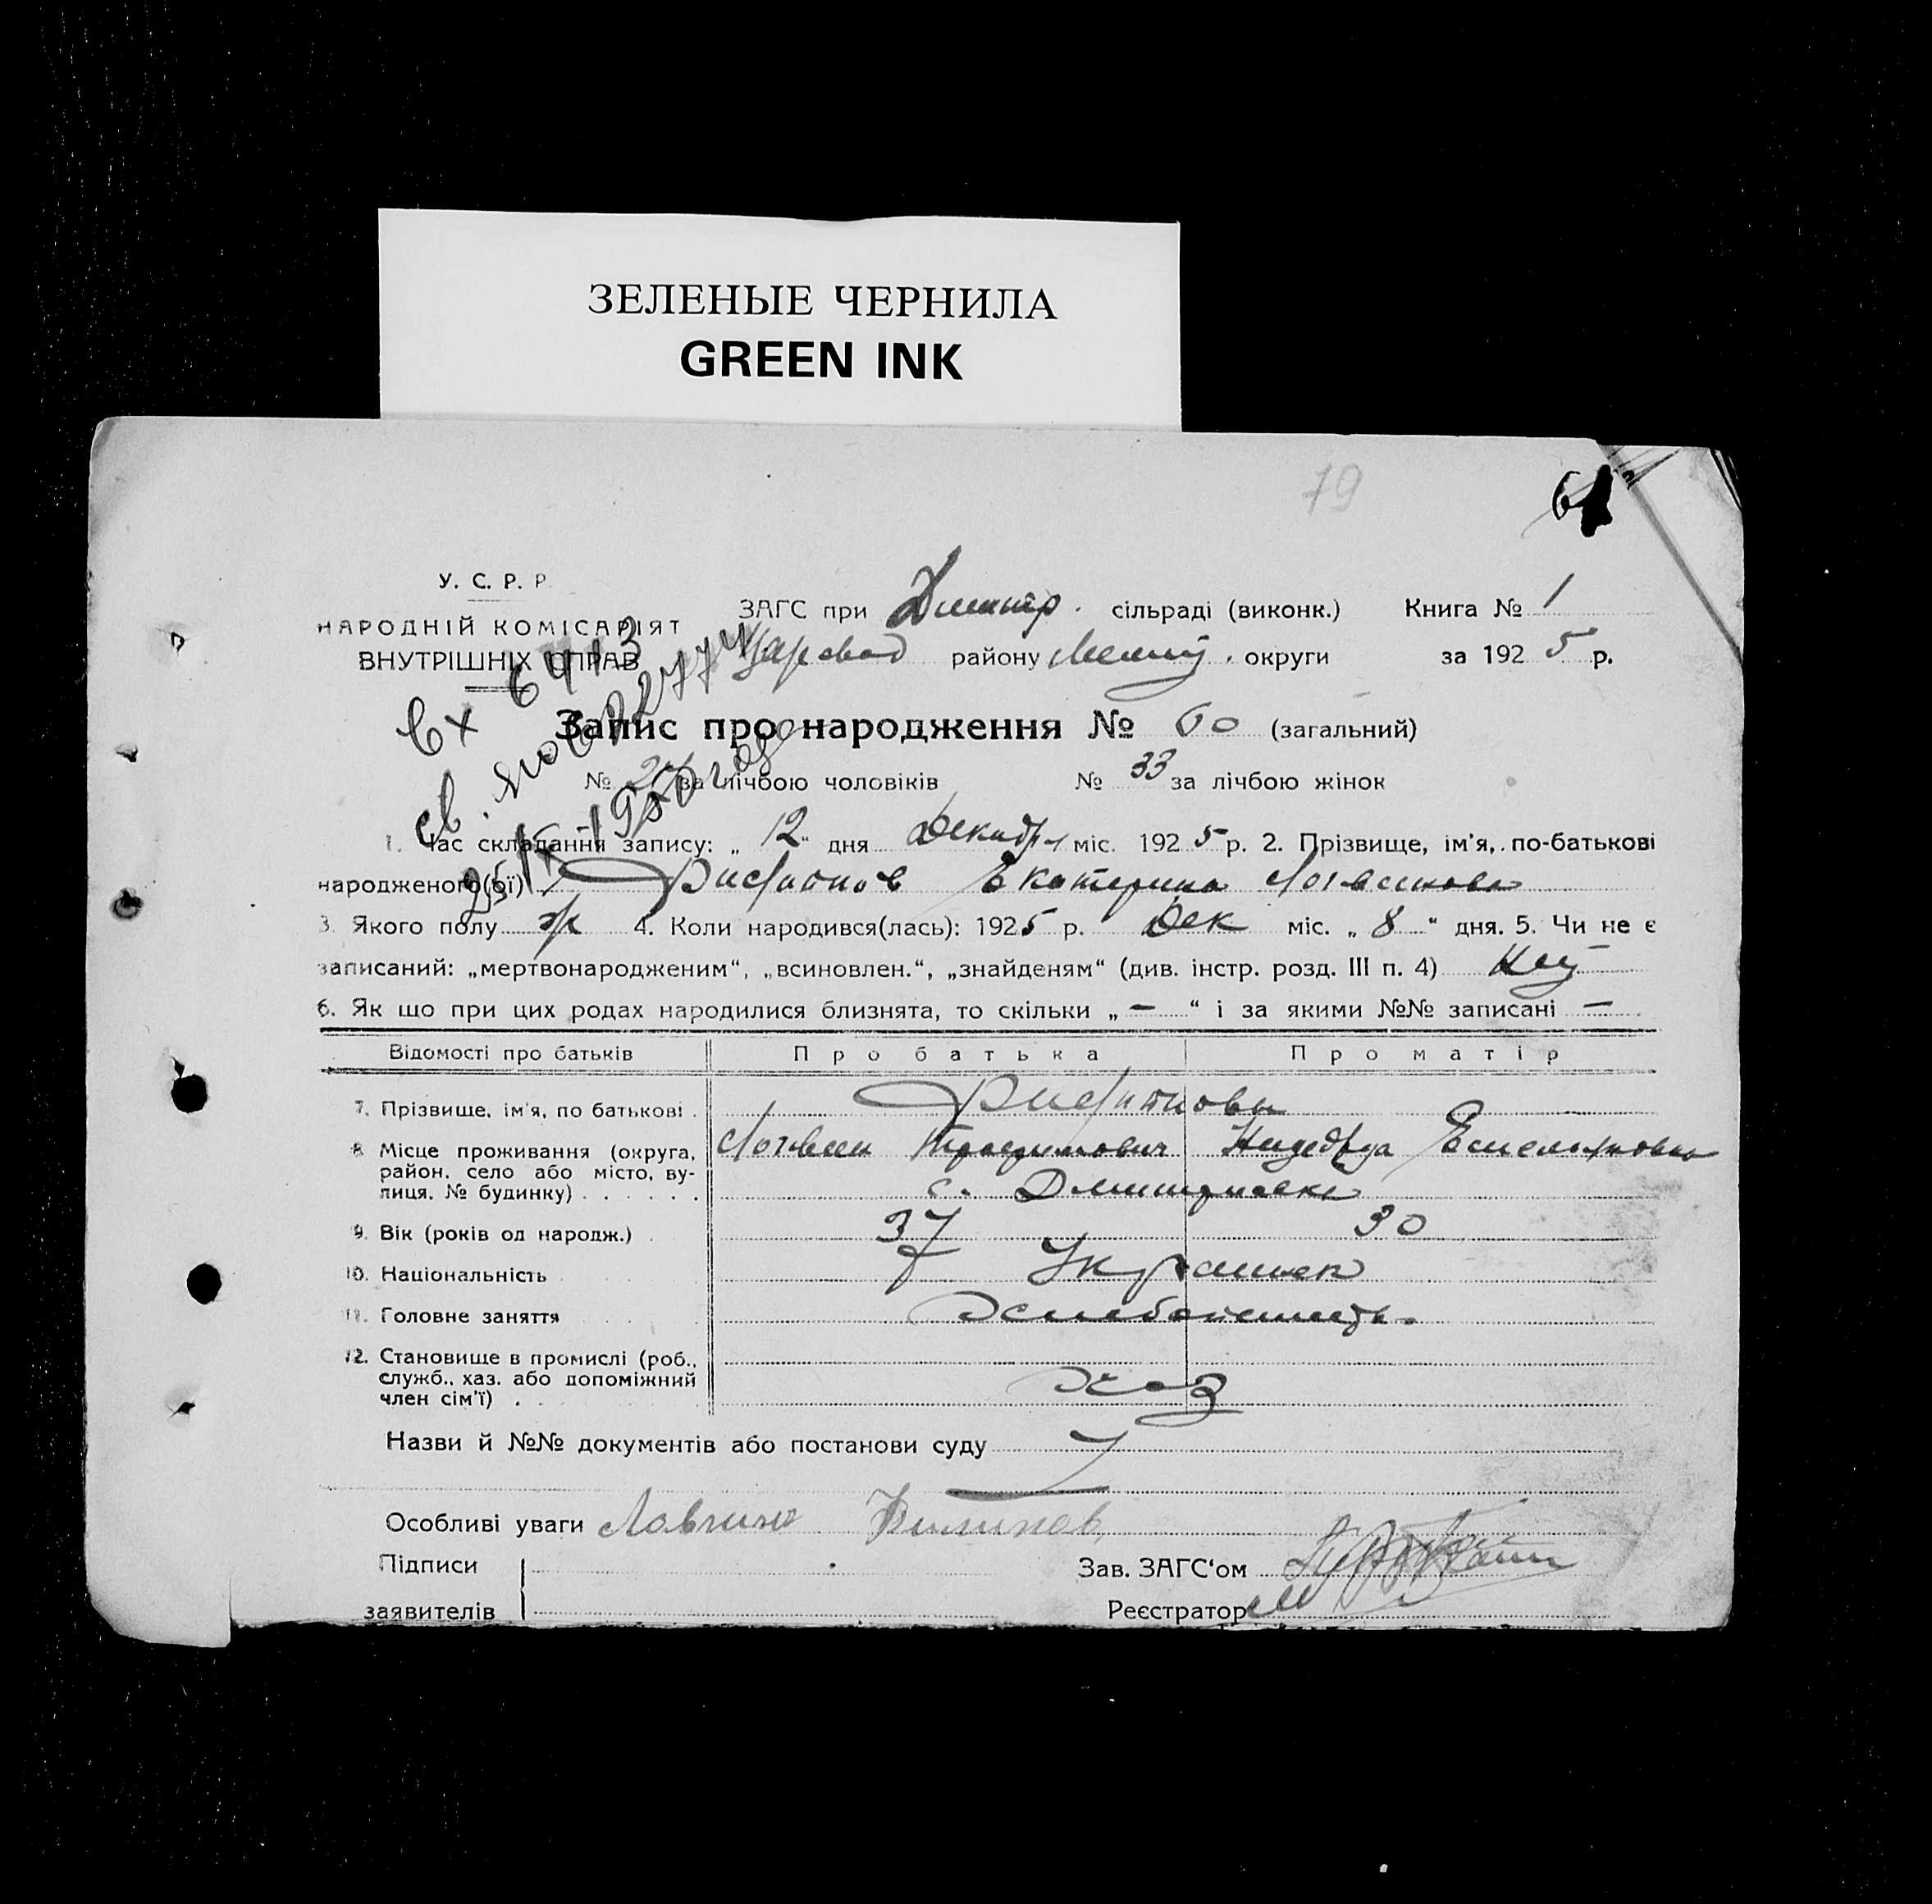 ЗЕЛЕНЫЕ ЧЕРНИЛА
GREEN INK
79
У. С. Р. Р.
НАРОДНІЙ КОМІСАРІЯТ
ВНУТРІШНІХ СПРАВ
ЗАГС при Дмитр. сільраді (виконк.) Книга № 1
району округи за 1925 р.
Вх 6443
Запис про народження № 60 (загальний)
№ за лічбою чоловіків № 33 за лічбою жінок
1. Час складання запису: „12“ дня Декабр міс. 1925 р. 2. Прізвище, ім'я, по-батькові
народженого(ої) Екатерина
3. Якого полу ж 4. Коли народився(лась): 1925 р. Дек міс. „8“ дня. 5. Чи не є
записаний: „мертвонародженим“, „всиновлен.“, „знайденям“ (див. інстр. розд. III п. 4) Нет
6. Як що при цих родах народилися близнята, то скільки „—“ і за якими №№ записані —
Відомості про батьків Про батька Про матір
7. Прізвище, ім'я, по батькові
8. Місце проживання (округа, район, село або місто, вулиця, № будинку)
Трофимович Надежда Емельяновна
с. Дмитриевка
9. Вік (років од народж.) 37 30
10. Національність Украинск
11. Головне заняття
12. Становище в промислі (роб., служб., хаз. або допоміжний член сім'ї) Хаз
Назви й №№ документів або постанови суду
Особливі уваги
Підписи
заявителів
Зав. ЗАГС'ом
Реєстратор